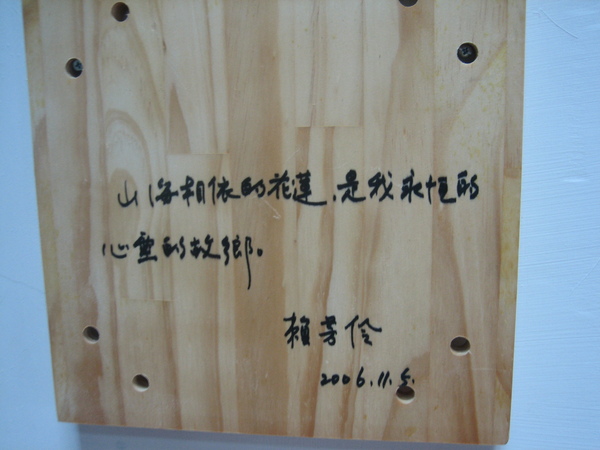 山海相依的花蓮，是我永恒的
心靈的故鄉。
賴芳伶
2006.11.5.